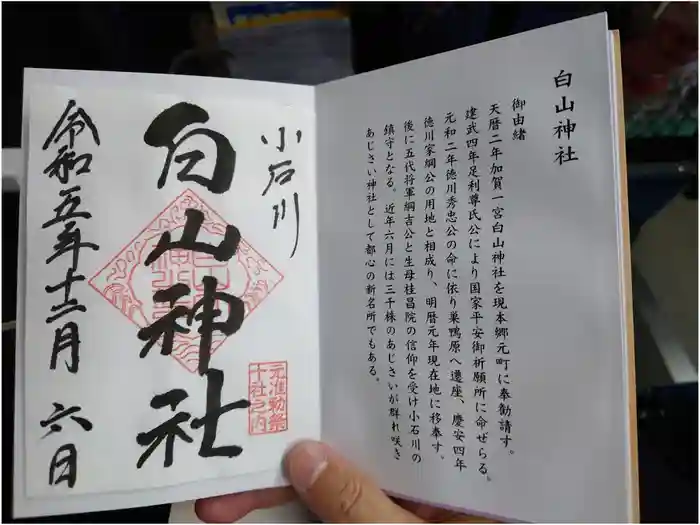 白山神社
御由緒
天暦二年加賀一宮白山神社を現本郷元町に奉勧請す。
建武四年足利尊氏公により国家平安御祈願所に命ぜらる。
元和二年徳川秀忠公の命に依り巣鴨原へ遷座、慶安四年
徳川家綱公の用地と相成り、明暦元年現在地に移奉す。
後に五代将軍綱吉公と生母桂昌院の信仰を受け小石川の
鎮守となる。近年六月には三千株のあじさいが群れ咲き
あじさい神社として都心の新名所でもある。
小石川
白山神社
元准勅祭
十社之内
令和五年十二月六日